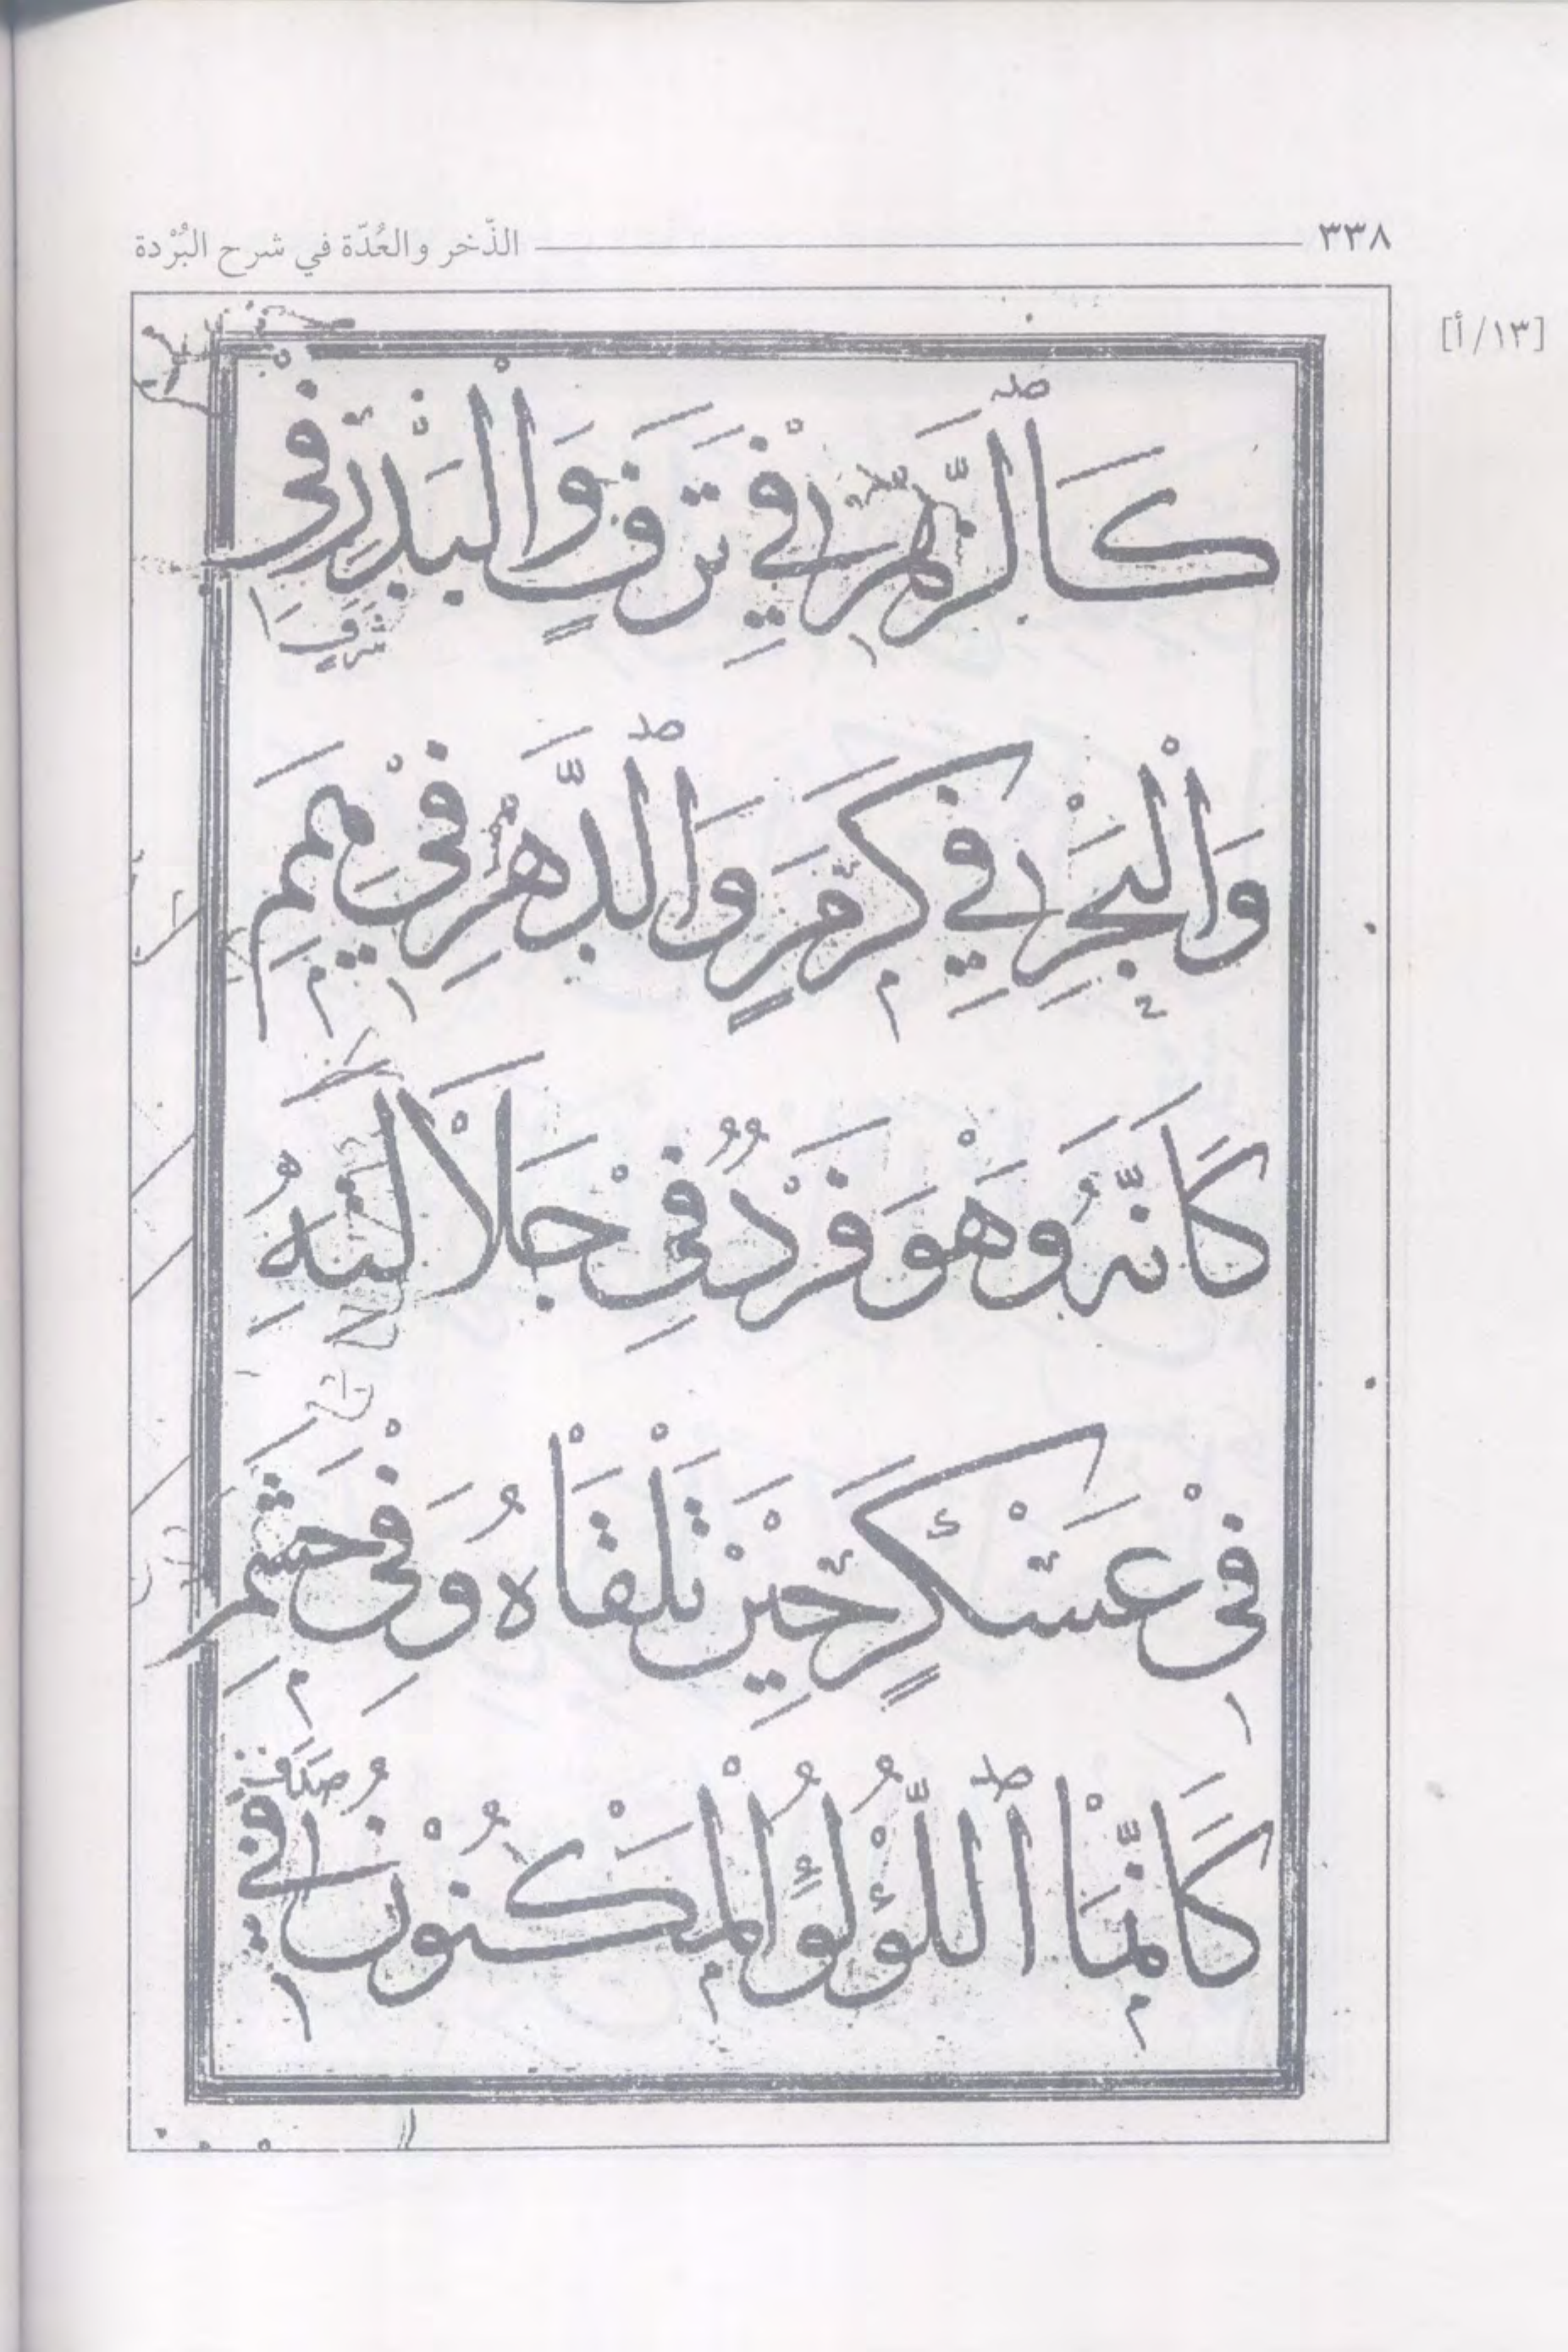 ٣٣٨ الذّخر والعُدّة في شرح البُرْدة
[١٣/أ]
كَٱلزَّهْرِ فِي تَرَفٍ وَالْبَدْرِ فِي
شَرَفٍ
وَالْبَحْرِ فِي كَرَمٍ وَٱلدَّهْرِ فِي هِمَمِ
كَاَنَّهُ وَهْوَ فَرْدٌ فِي جَلَالَتِهِ
فِي عَسْكَرٍ حِيْنَ تَلْقَاهُ وَفِي حَشَمِ
صَدَفٍ
كَاَنَّمَا ٱللُّؤْلُؤُ الْمَكْنُوْنُ فِي